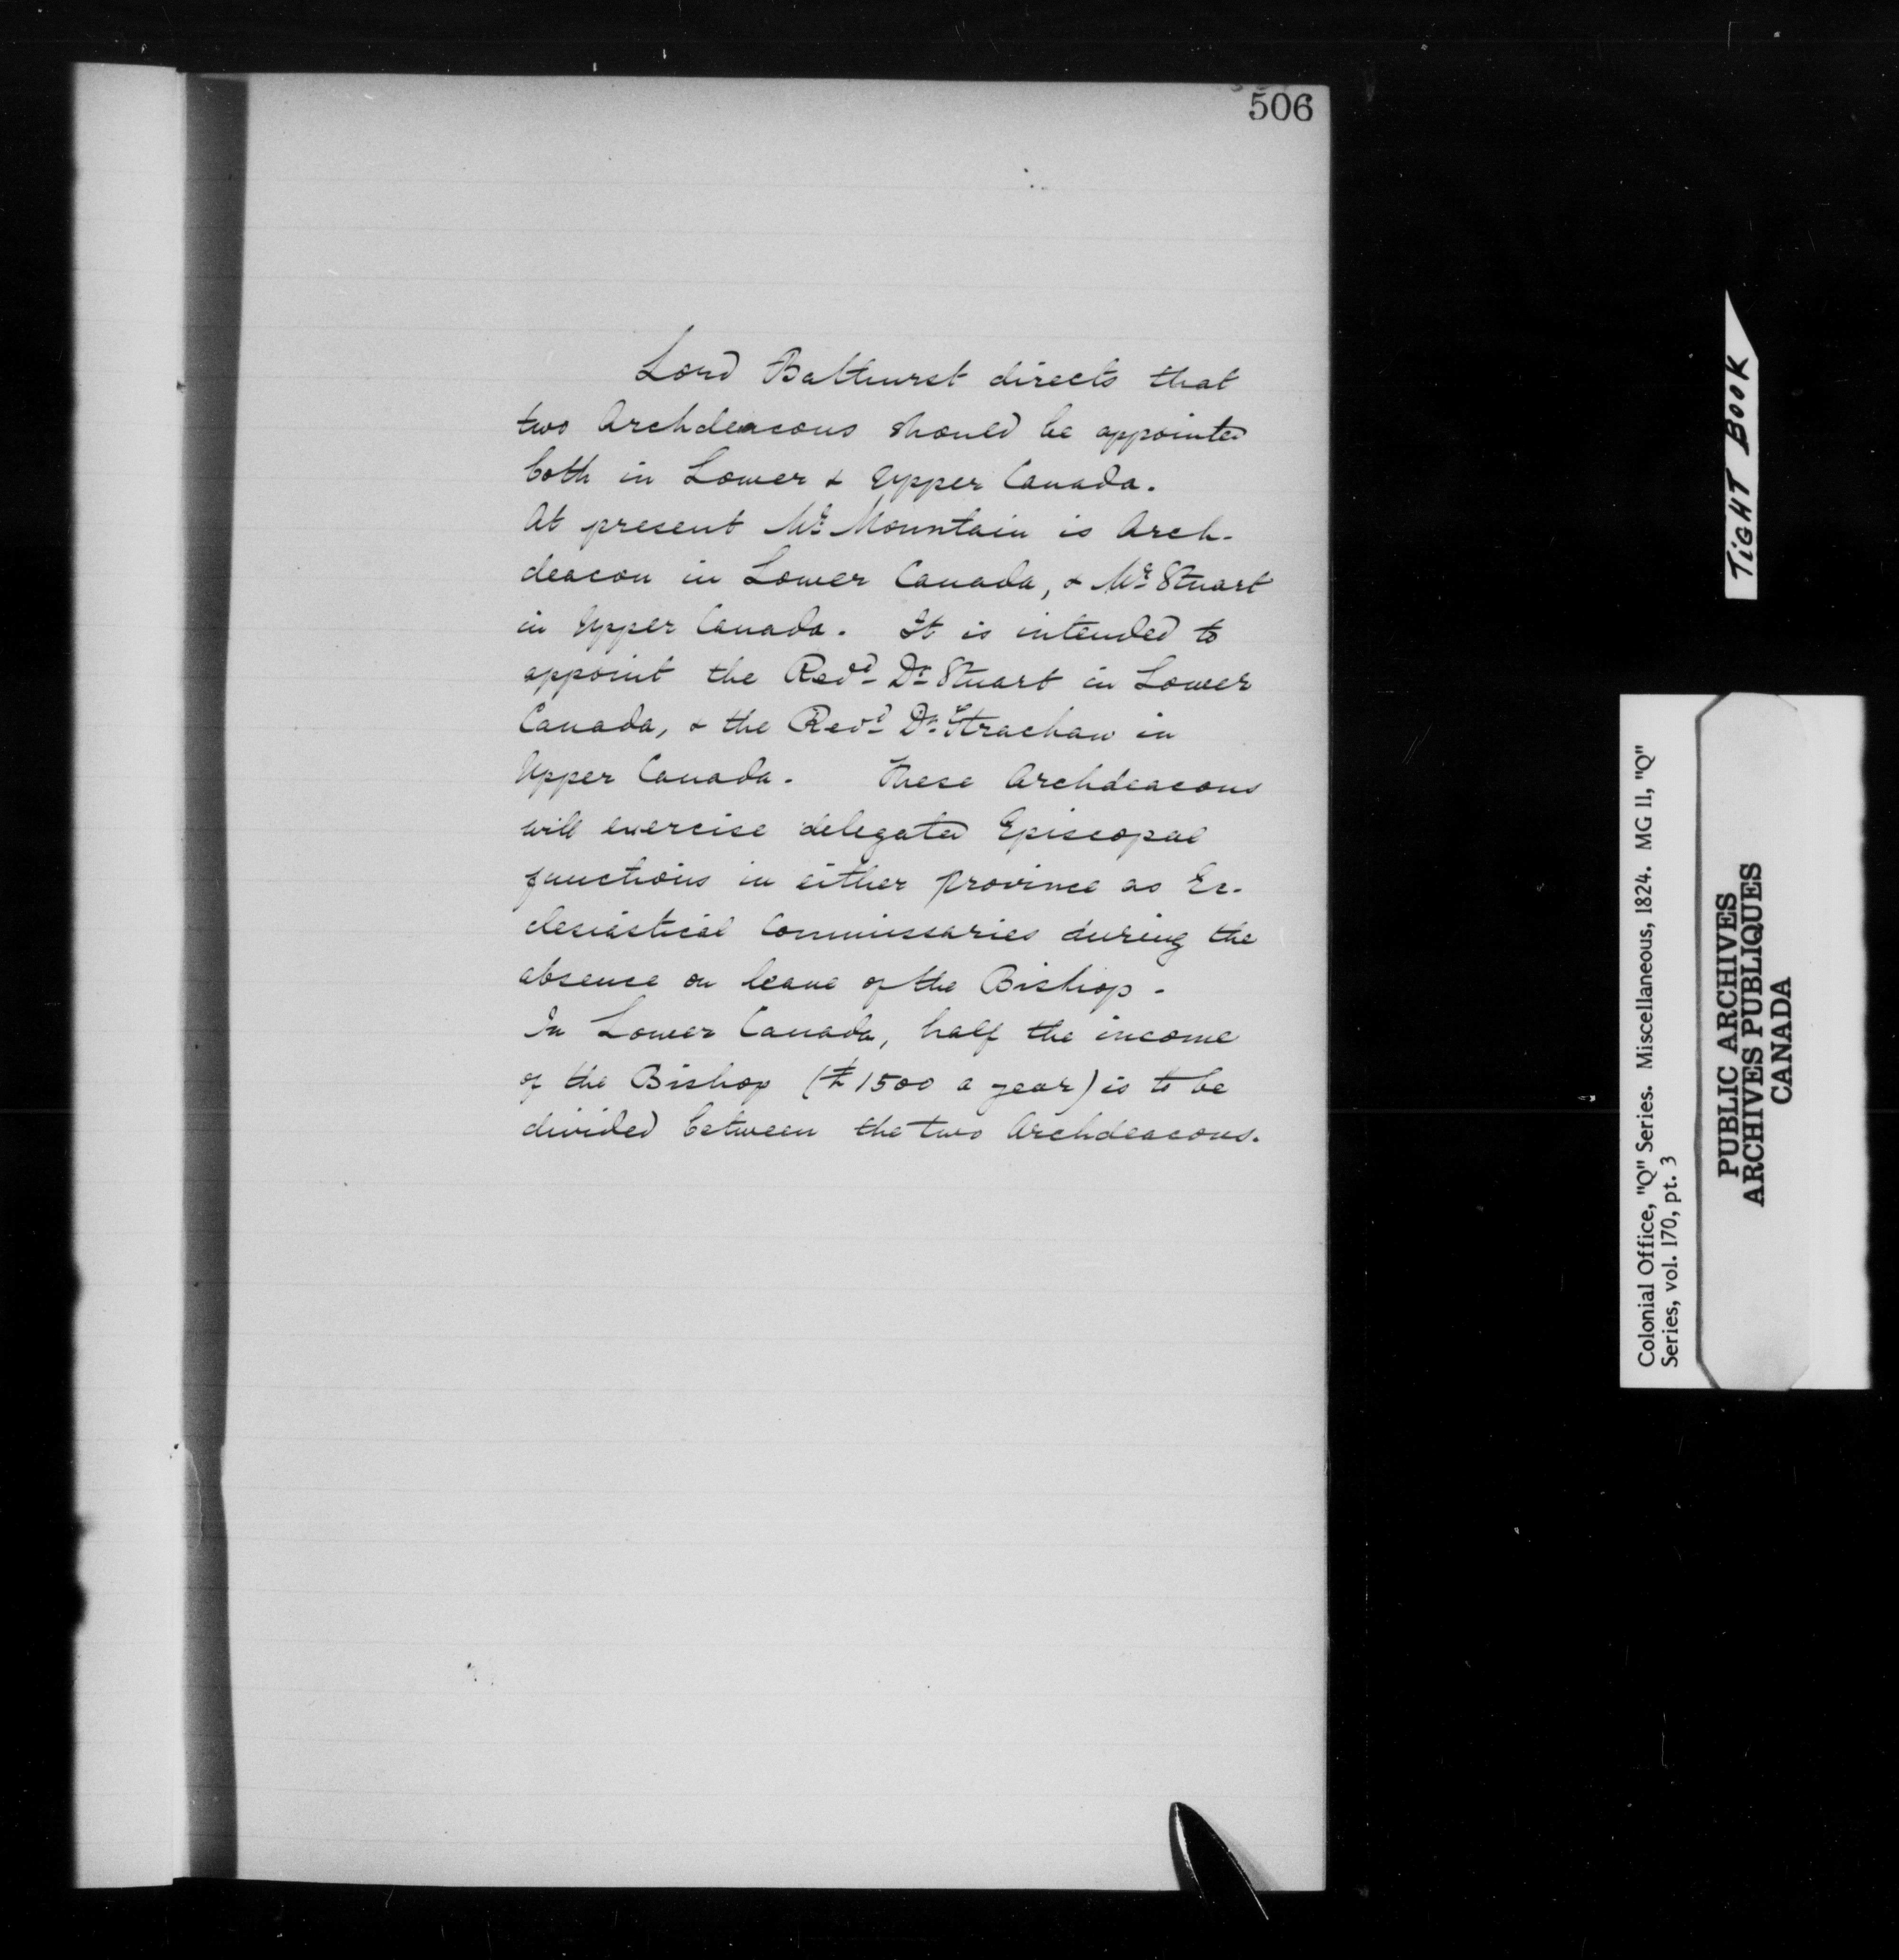 506
Lord Bathurst directs that
two Archdeacons should be appointed
both in Lower & Upper Canada.
At present Mr. Mountain is Arch-
deacon in Lower Canada, & Mr. Stuart
in Upper Canada. It is intended to
appoint the Revd. Dr. Stuart in Lower
Canada, & the Revd. Dr. Strachan in
Upper Canada. These Archdeacons
will exercise delegated Episcopal
functions in either province as Ec-
clesiastical Commissaries during the
absence on leave of the Bishop.
In Lower Canada, half the income
of the Bishop (£1500 a year) is to be
divided between the two Archdeacons.
TIGHT BOOK
Colonial Office, "Q" Series. Miscellaneous, 1824. MG 11, "Q"
Series, vol. 170, pt. 3
PUBLIC ARCHIVES
ARCHIVES PUBLIQUES
CANADA